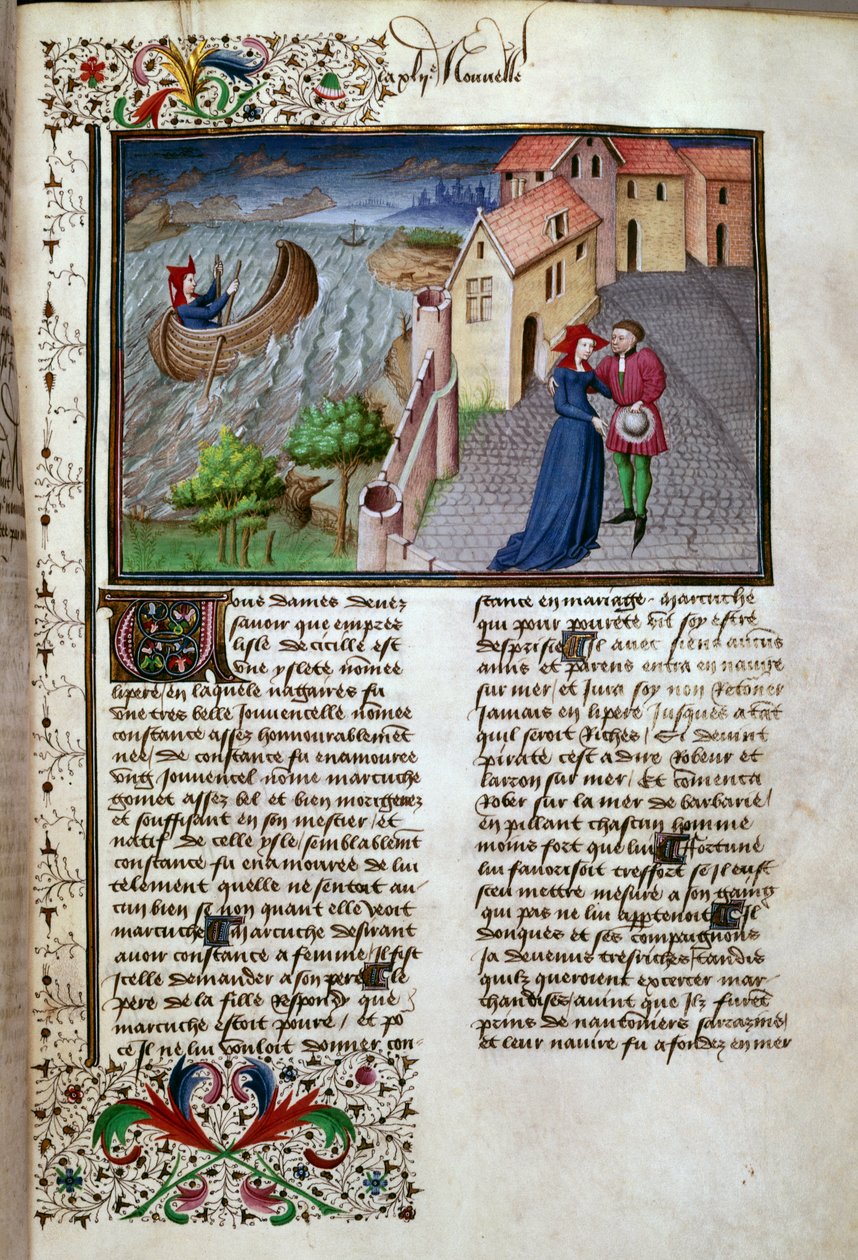 la xlij.e Nouuelle
Vous dames deuez
sauoir que empres
lisle de cicille est
vne yslete nōmee
lipere / en laquele nagaires fu
vne tres belle Jouuencelle nōmee
constance assez honnourablemēt
nee / de constance fu enamouree
vng Jouuencel nōme martuche
gomet assez bel et bien morigenez
et souffisant en son mestier / et
natif de celle ysle / semblablemēt
constance fu enamouree de lui
telement quelle ne sentoit au-
cun bien se non quant elle veoit
martuche Martuche desirant
auoir constance a femme / Il fist
Icelle demander a son pere Le
pere de la fille respondy que
martuche estoit poure / et po
ce Il ne lui vouloit donner con-
stance en mariage . Martuche
qui pour pourete vit soy estre
desprisie Il auec siens aucūs
amis et parens entra en nauire
sur mer / et Jura soy non retōner
Jamais en lipere Jusques a tāt
quil seroit riches / Si deuint
pirate cest a dire robeur et
larron sur mer / Et cōmenca
rober sur la mer de barbarie /
en pillant chascun homme
moins fort que lui Fortune
lui fauorisoit tresfort se Il eust
sceu mettre mesure a son gaing
qui pas ne lui appertenoit Cil
donques et ses compaignons
Ja deuenus tresriches / tandis
quilz queroient excercer mar-
chandises / auint que Ilz furēt
prins de nautōniers sarrazins /
et leur nauire fu afondez en mer